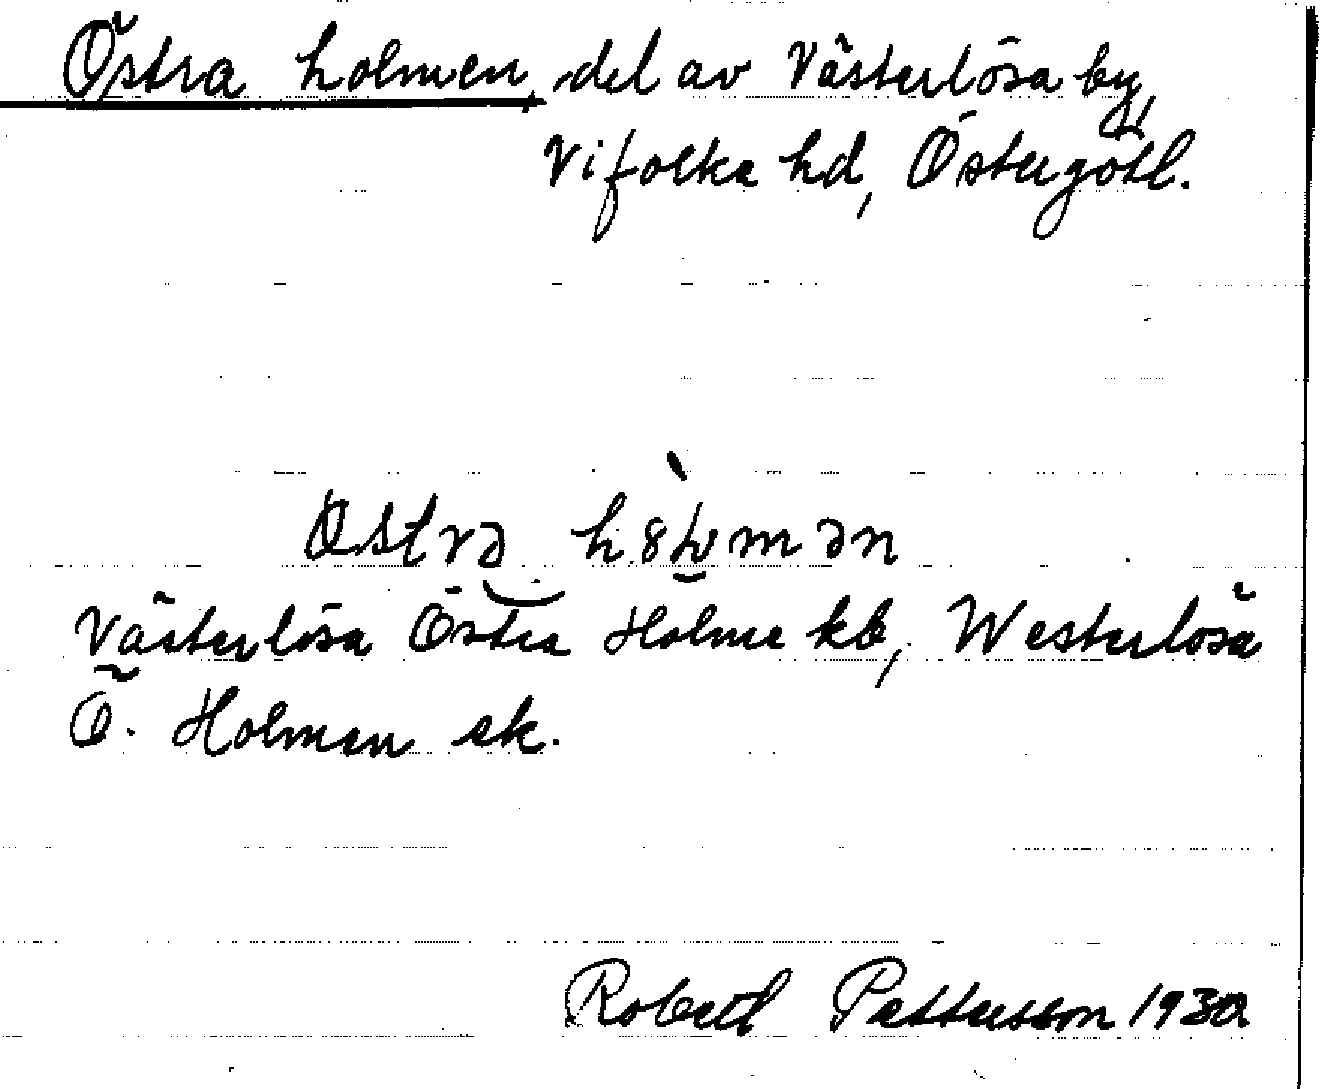 Östra holmen, del av Västerlösa by,
Vifolka hd, Östergötl.
Östrə hȣlmən
Västerlösa Östra Holme kb, Westerlösa
Ö. Holmen sk.
Robert Pettersson 1930